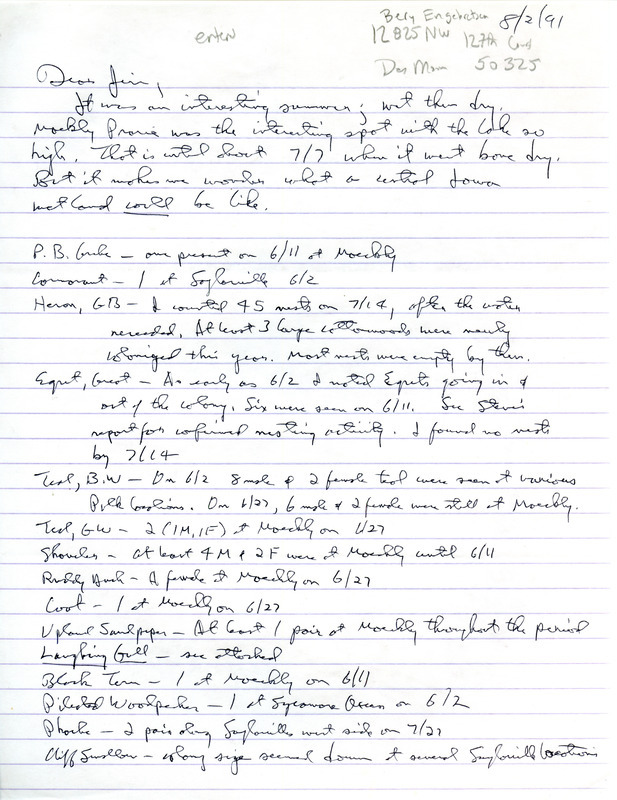 Bery Engebretsen 8/2/91
enter
12825 NW 127th Court
Des Moines 50325
Dear Jim,
It was an interesting summer; wet then dry.
Moeckly Prairie was the interesting spot with the lake so
high. That is until about 7/7 when it went bone dry.
But it makes me wonder what a central Iowa
wetland could be like.
P.B. Grebe - one present on 6/11 at Moeckly
Cormorant - 1 at Saylorville 6/2
Heron, GB - I counted 45 nests on 7/14, after the water
receeded. At least 3 large cottonwoods were newly
colonized this year. Most nests were empty by then.
Egret, Great - As early as 6/2 I noted Egrets going in &
out of the colony. Six were seen on 6/11. See Steve's
report for confirmed nesting activity. I found no nests
by 7/14
Teal, B.W - On 6/2 8 male & 2 female teal were seen at various
Polk locations. On 6/27, 6 male & 2 female were still at Moeckly.
Teal, GW - 2 (1M, 1F) at Moeckly on 6/27
Shoveler - at least 4 M & 2 F were at Moeckly until 6/11
Ruddy Duck - A female at Moeckly on 6/27
Coot - 1 at Moeckly on 6/27
Upland Sandpiper - At least 1 pair at Moeckly throughout the period
Laughing Gull - see attached
Black Tern - 1 at Moeckly on 6/11
Pileated Woodpecker - 1 at Sycamore Access on 6/2
Phoebe - 2 pair along Saylorville's west side on 7/27
Cliff Swallow - colony size seemed down at several Saylorville locations